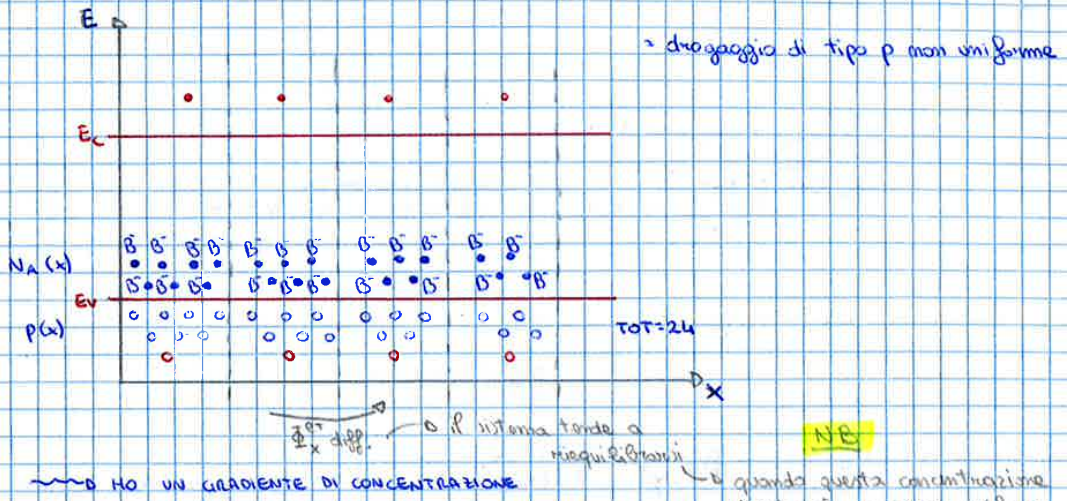 E
= drogaggio di tipo p non uniforme
Ec
B⁻ B⁻ B⁻ B⁻ B⁻ B B⁻ B⁻ B⁻ B⁻ B⁻ B⁻
NA (x)
B⁻ B⁻ B⁻ B⁻ B⁻ B⁻ B⁻ B⁻ B⁻ B⁻
Ev
p(x)
TOT=24
x
diff.
il sistema tende a
riequilibrarsi
NB
HO UN GRADIENTE DI CONCENTRAZIONE
quando questa concentrazione